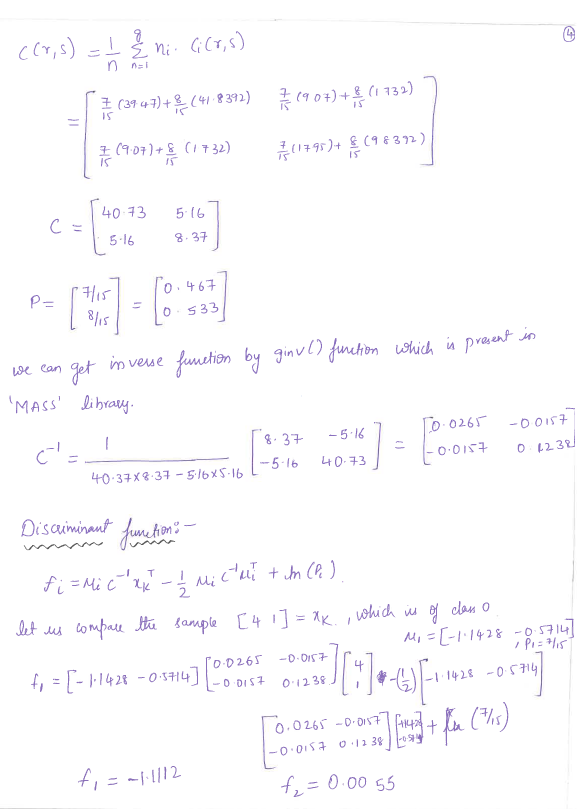 4
C(r,s) = 1/n Σ_{n=1}^{g} ni. Ci(r,s)
= [ 7/15 (39.47) + 8/15 (41.8392)    7/15 (9.07) + 8/15 (1.732)
7/15 (9.07) + 8/15 (1.732)    7/15 (1.795) + 8/15 (9.8392) ]
C = [ 40.73    5.16
5.16    8.37 ]
P = [ 7/15
8/15 ] = [ 0.467
0.533 ]
we can get inverse function by ginv() function which is present in
'MASS' library.
C⁻¹ = 1 / (40.37×8.37 – 5.16×5.16) [ 8.37    -5.16
-5.16    40.73 ] = [ 0.0265    -0.0157
-0.0157    0.1238 ]
Discriminant function:-
fi = Mi C⁻¹ xKᵀ – 1/2 Mi C⁻¹ Miᵀ + ln (Pi)
let us compare the sample [4 1] = xK, which is of class 0
M1 = [-1.1428 -0.5714], P1 = 7/15
f1 = [-1.1428 -0.5714] [ 0.0265 -0.0157
-0.0157 0.1238 ] [ 4
1 ] - (1/2) [-1.1428 -0.5714]
[ 0.0265 -0.0157
-0.0157 0.1238 ] [ -1.1428
-0.5714 ] + ln (7/15)
f1 = -1.1112    f2 = 0.0055